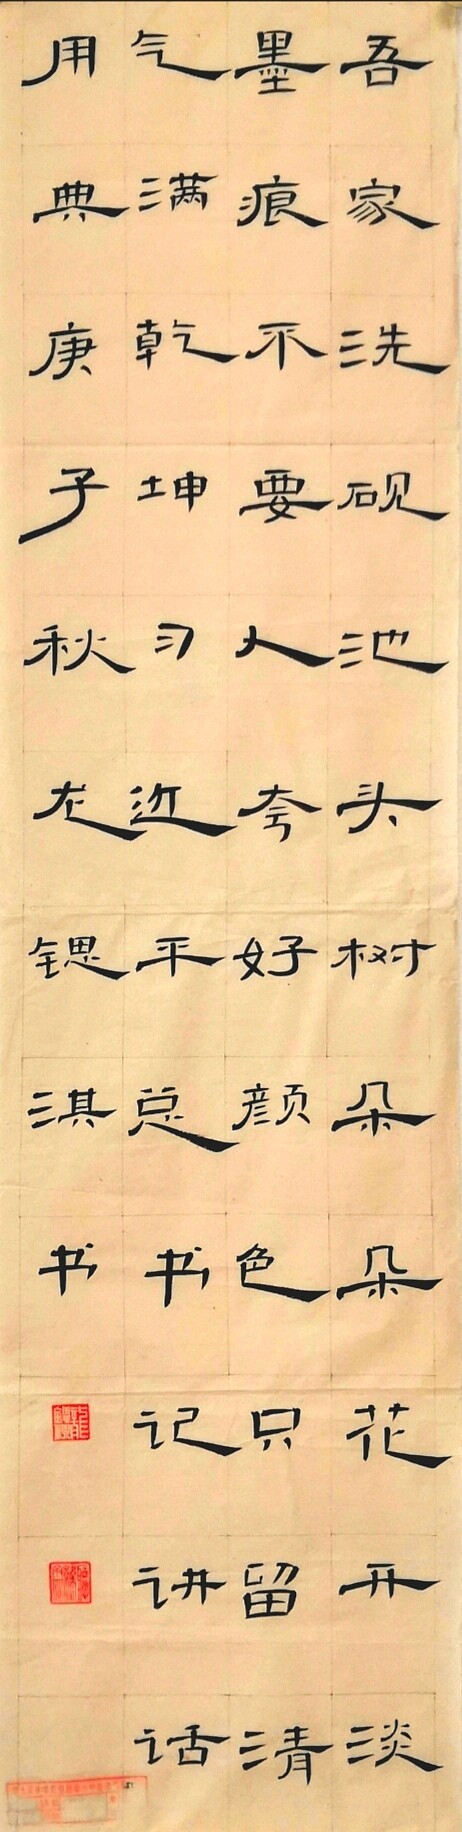 吾家洗砚池头树朵朵花开淡
墨痕不要人夸好颜色只留清
气满乾坤习近平总书记讲话
用典庚子秋龙锶淇书